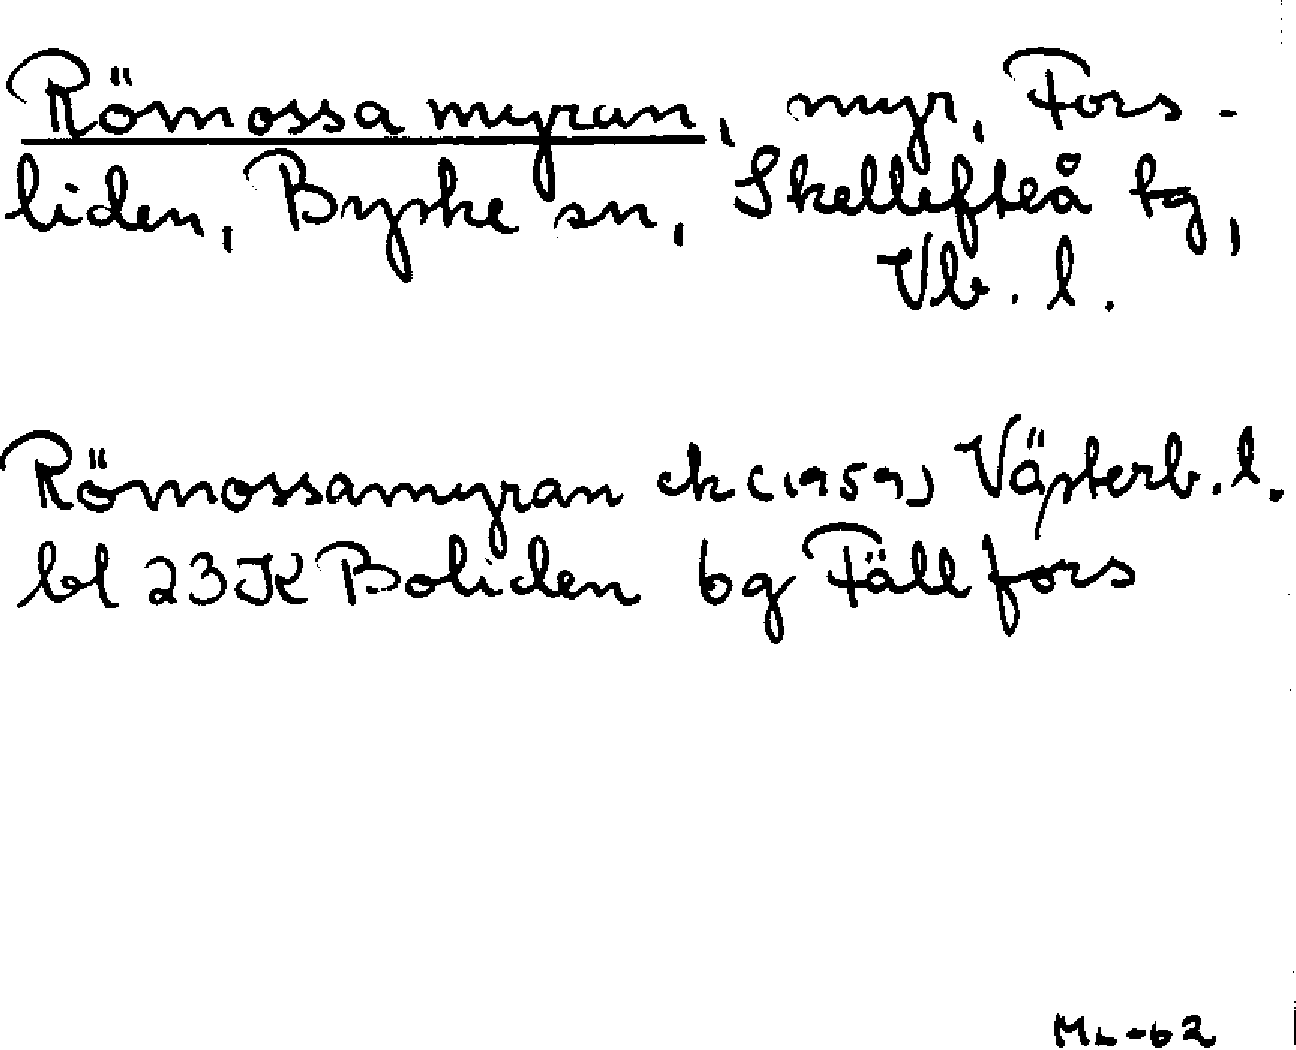 Römossamyran, myr, Fors-
liden, Byske sn, Skellefteå tg,
Vb. l.
Römossamyran ek (1959) Västerb. l.
bl 23K Boliden bg Fällfors
ML-62